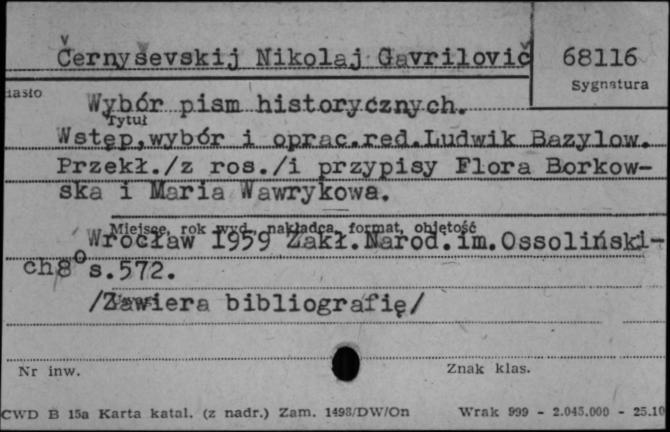 Černyševskij Nikolaj Gavrilovič
68116
Sygnatura
Wybór pism historycznych.
Tytuł
Wstęp,wybór i oprac.red.Ludwik Bazylow.
Przekł./z ros./i przypisy Flora Borkow-
ska i Maria Wawrykowa.
Miejsce, rok wyd., nakładca, format, objętość
Wrocław 1959 Zakł.Narod.im.Ossoliński-
ch8° s.572.
/Zawiera bibliografię/
Nr inw.
Znak klas.
CWD B 15a Karta katal. (z nadr.) Zam. 1498/DW/On
Wrak 999 - 2.045.000 - 25.10